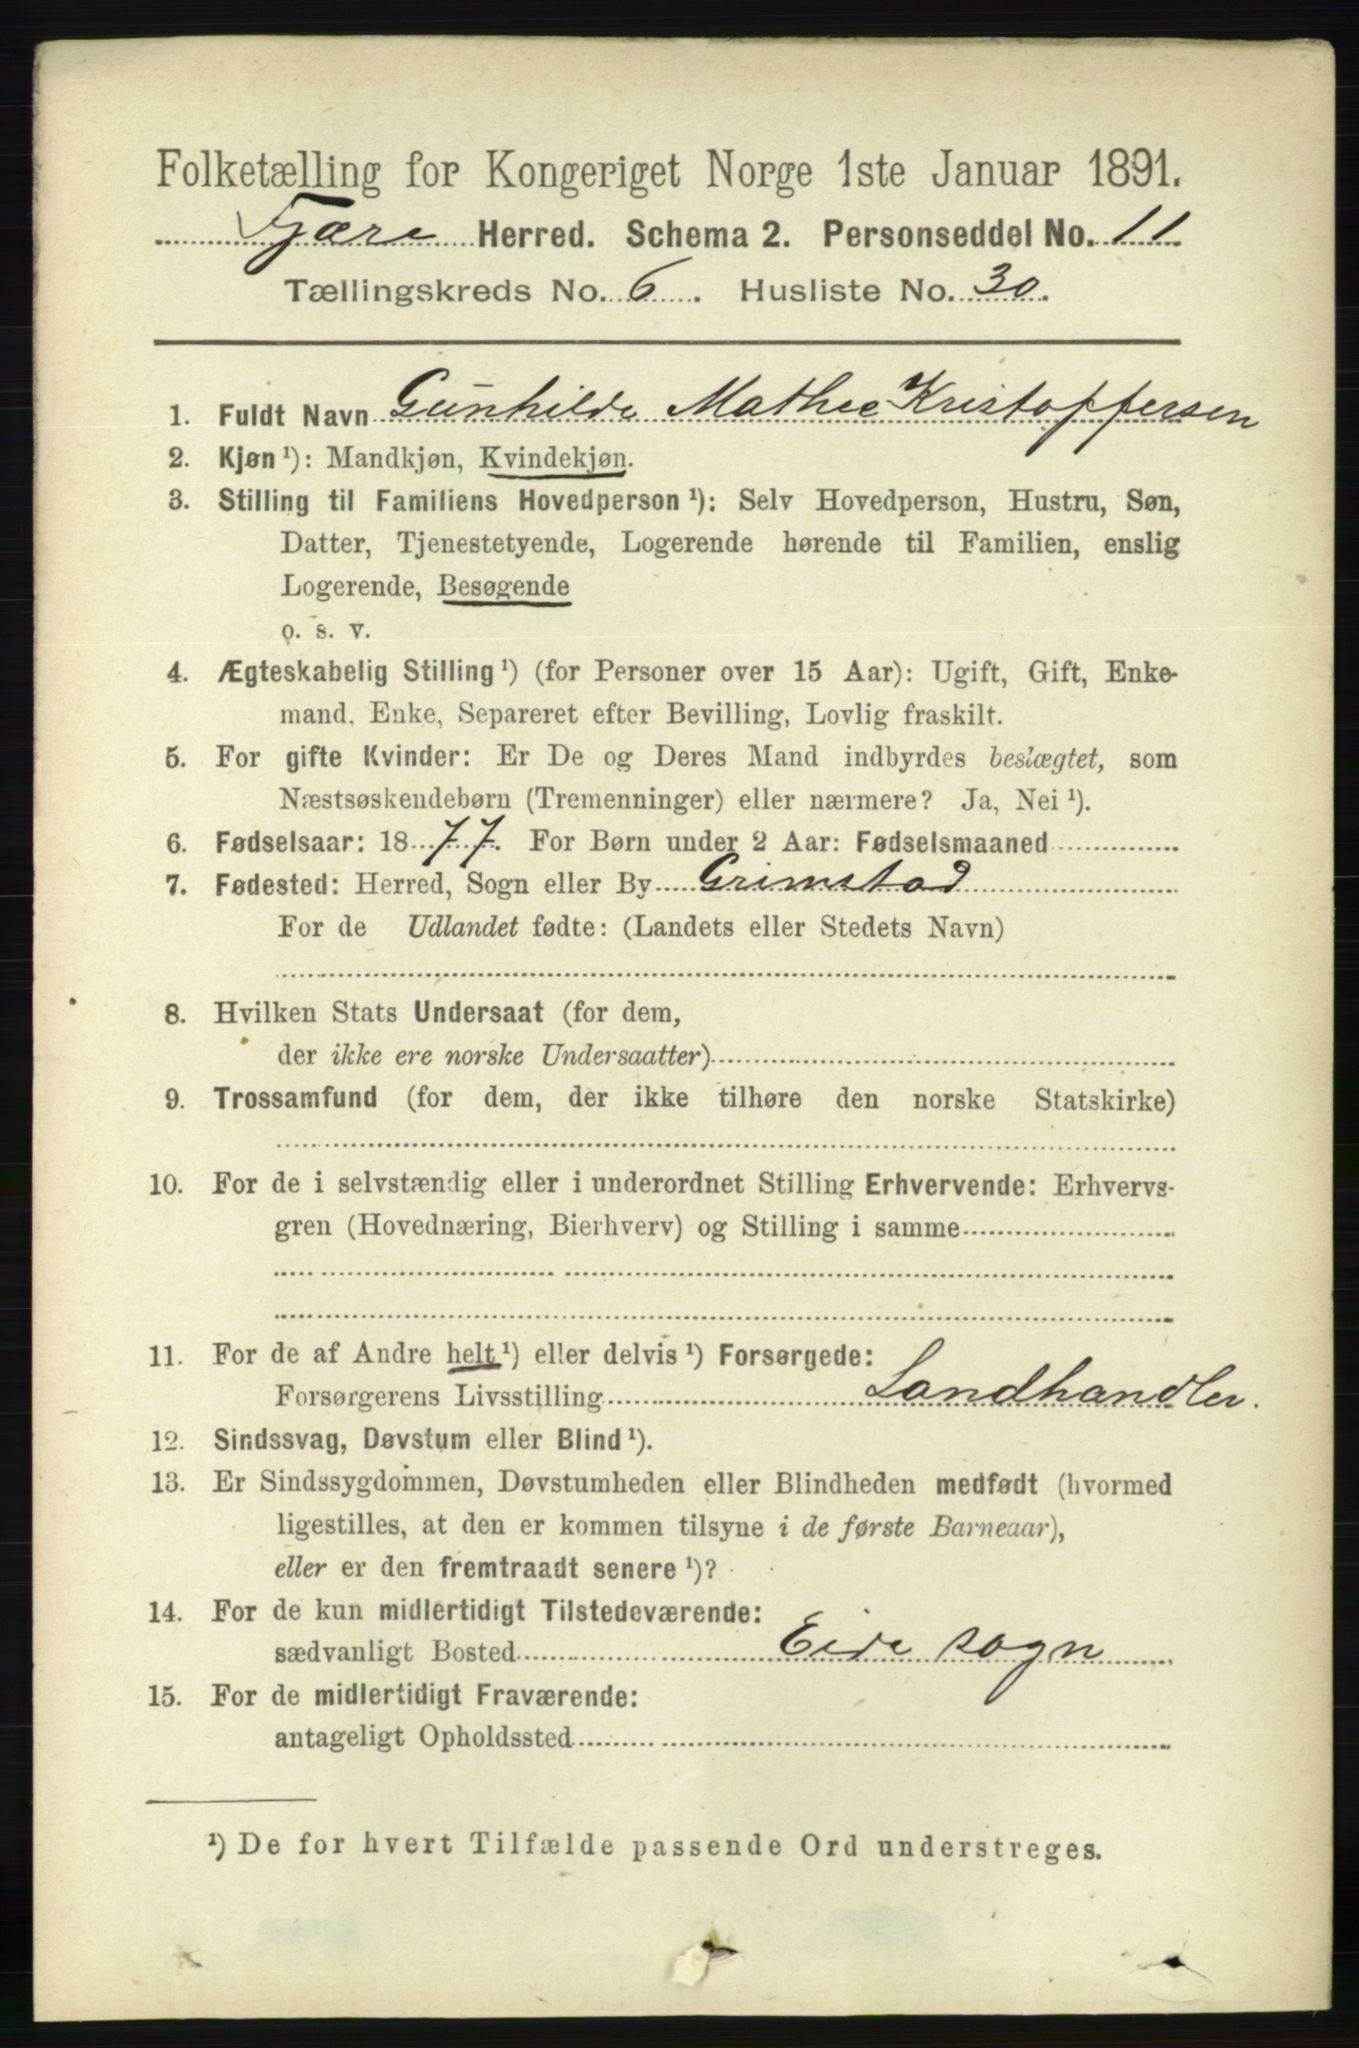 Folketælling for Kongeriget Norge 1ste Januar 1891.
Fjære Herred. Schema 2. Personseddel No. 11
Tællingskreds No. 6. Husliste No. 30.
1. Fuldt Navn Gunhilde Mathee Kristoffersen
2. Kjøn¹): Mandkjøn, Kvindekjøn.
3. Stilling til Familiens Hovedperson¹): Selv Hovedperson, Hustru, Søn,
Datter, Tjenestetyende, Logerende hørende til Familien, enslig
Logerende, Besøgende
o. s. v.
4. Ægteskabelig Stilling¹) (for Personer over 15 Aar): Ugift, Gift, Enke-
mand, Enke, Separeret efter Bevilling, Lovlig fraskilt.
5. For gifte Kvinder: Er De og Deres Mand indbyrdes beslægtet, som
Næstsøskendebørn (Tremenninger) eller nærmere? Ja, Nei¹).
6. Fødselsaar: 1877. For Børn under 2 Aar: Fødselsmaaned
7. Fødested: Herred, Sogn eller By Grimstad
For de Udlandet fødte: (Landets eller Stedets Navn)
8. Hvilken Stats Undersaat (for dem,
der ikke ere norske Undersaatter)
9. Trossamfund (for dem, der ikke tilhøre den norske Statskirke)
10. For de i selvstændig eller i underordnet Stilling Erhvervende: Erhvervs-
gren (Hovednæring, Bierhverv) og Stilling i samme
11. For de af Andre helt¹) eller delvis¹) Forsørgede:
Forsørgerens Livsstilling Landhandler.
12. Sindssvag, Døvstum eller Blind¹).
13. Er Sindssygdommen, Døvstumheden eller Blindheden medfødt (hvormed
ligestilles, at den er kommen tilsyne i de første Barneaar),
eller er den fremtraadt senere¹)?
14. For de kun midlertidigt Tilstedeværende:
sædvanligt Bosted Eide sogn
15. For de midlertidigt Fraværende:
antageligt Opholdssted
¹) De for hvert Tilfælde passende Ord understreges.